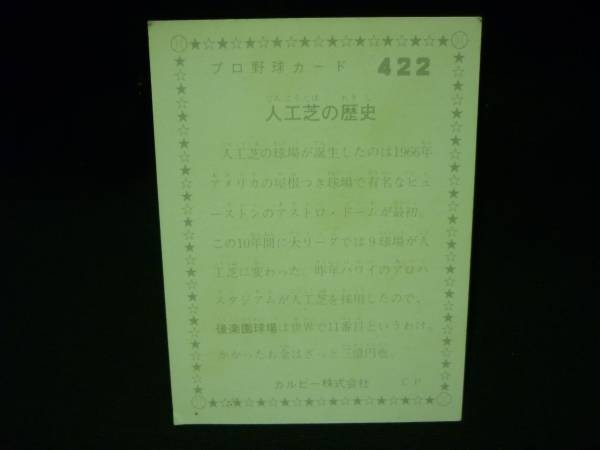 プロ野球カード 422
じんこうしば れきし
人工芝の歴史
人工芝の球場が誕生したのは1966年
アメリカの屋根つき球場で有名なヒュ
ーストンのアストロ・ドームが最初。
この10年間に大リーグでは9球場が人
工芝に変わった。昨年ハワイのアロハ
スタジアムが人工芝を採用したので、
後楽園球場は世界で11番目というわけ。
かかったお金はざっと三億円也。
カルビー株式会社 C P